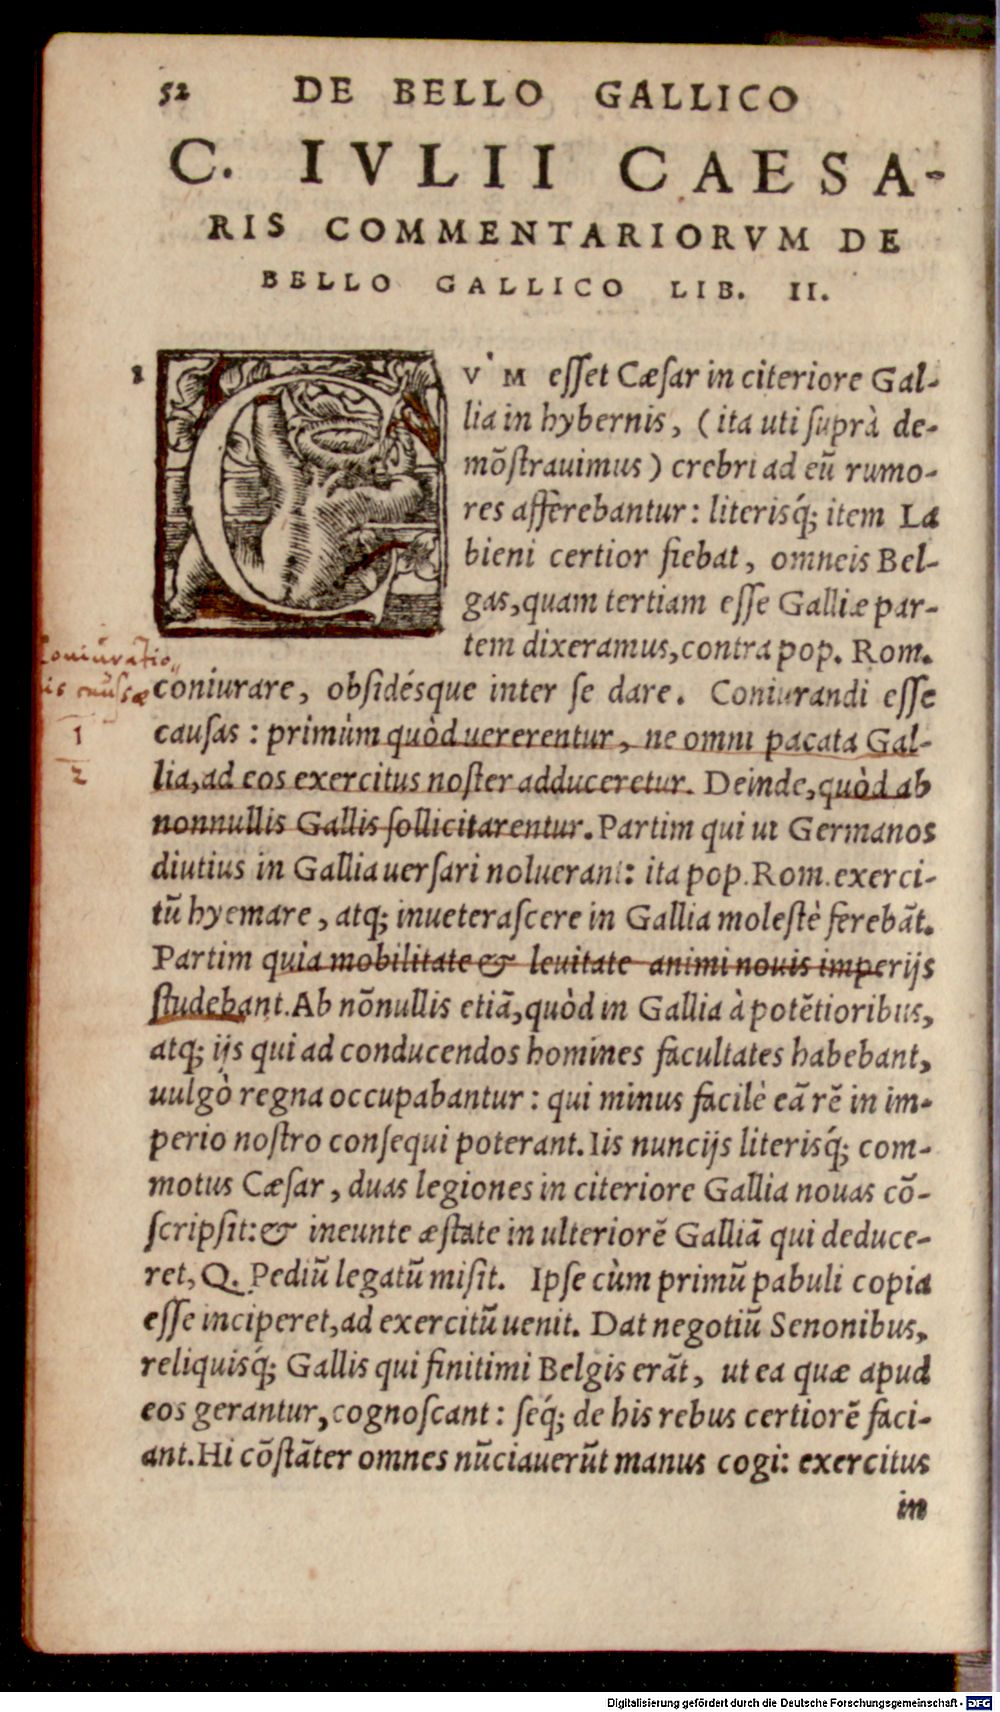 52 DE BELLO GALLICO
C. IVLII CAESA-
RIS COMMENTARIORVM DE
BELLO GALLICO LIB. II.
1 CV̀M esſet Cæſar in citeriore Gal-
lia in hybernis, (ita uti ſuprà de-
mōſtrauimus) crebri ad eū rumo-
res afferebantur: literisq́; item La
bieni certior fiebat, omneis Bel-
gas, quam tertiam eſſe Galliæ par-
tem dixeramus, contra pop. Rom.
Coniuratio„
nis cauſsæ
coniurare, obſidésque inter ſe dare. Coniurandi eſſe
1
cauſas: primùm quòd uererentur, ne omni pacata Gal-
2
lia, ad eos exercitus noſter adduceretur. Deinde, quòd ab
nonnullis Gallis ſollicitarentur. Partim qui ut Germanos
diutius in Gallia uerſari noluerant: ita pop. Rom. exerci-
tū hyemare, atq; inueteraſcere in Gallia moleſtè ferebāt.
Partim quia mobilitate & leuitate animi nouis imperijs
ſtudebant. Ab nōnullis etiā, quòd in Gallia à potētioribus,
atq; ijs qui ad conducendos homines facultates habebant,
uulgò regna occupabantur: qui minus facilè eā rē in im-
perio noſtro conſequi poterant. Iis nuncijs literisq́; com-
motus Cæſar, duas legiones in citeriore Gallia nouas cō-
ſcripſit: & ineunte æſtate in ulteriorē Galliā qui deduce-
ret, Q. Pediū legatū miſit. Ipſe cùm primū pabuli copia
eſſe inciperet, ad exercitū uenit. Dat negotiū Senonibus,
reliquisq́; Gallis qui finitimi Belgis erāt, ut ea quæ apud
eos gerantur, cognoſcant: ſeq́; de his rebus certiorē faci-
ant. Hi cōſtāter omnes nūciauerūt manus cogi: exercitus
in
Digitalisierung gefördert durch die Deutsche Forschungsgemeinschaft - DFG